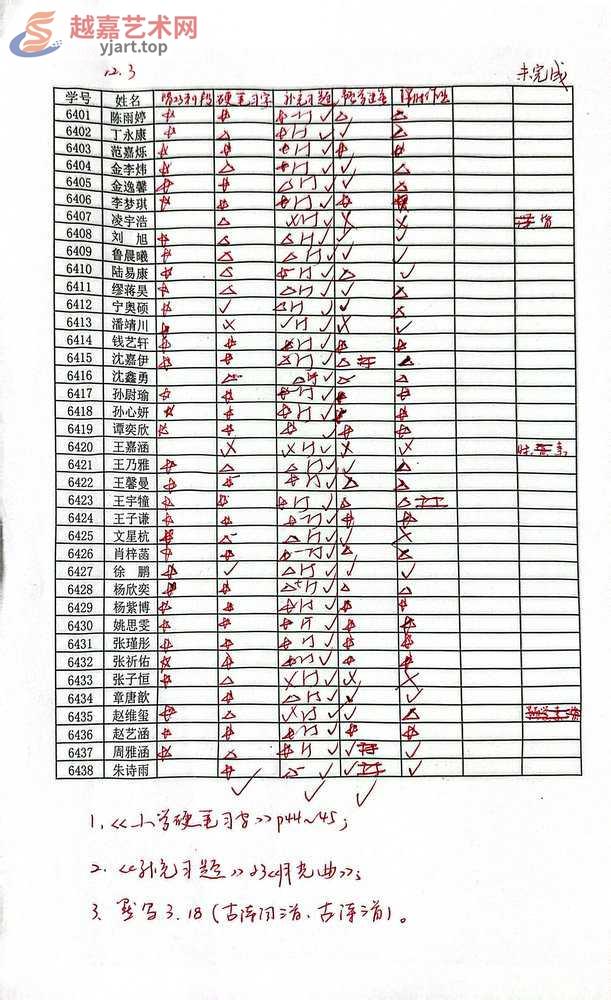 越嘉艺术网
yjart.top
12.3 未完成
学号 姓名 硬笔习字 补充习题
6401 陈雨婷
6402 丁永康
6403 范嘉烁
6404 金李炜
6405 金逸馨
6406 李梦琪
6407 凌宇浩
6408 刘 旭
6409 鲁晨曦
6410 陆易康
6411 缪蒋昊
6412 宁奥硕
6413 潘靖川
6414 钱艺轩
6415 沈嘉伊
6416 沈鑫勇
6417 孙尉瑜
6418 孙心妍
6419 谭奕欣
6420 王嘉涵
6421 王乃雅
6422 王馨曼
6423 王宇犝
6424 王子谦
6425 文星杭
6426 肖梓菡
6427 徐 鹏
6428 杨欣奕
6429 杨紫博
6430 姚思雯
6431 张瑾彤
6432 张祈佑
6433 张子恒
6434 章唐歆
6435 赵维玺
6436 赵艺涵
6437 周雅涵
6438 朱诗雨
1.《小学硬笔习字》P44~45;
2.《补充习题》23《月光曲》;
3. 默写3.18(古诗词背、古诗背)。